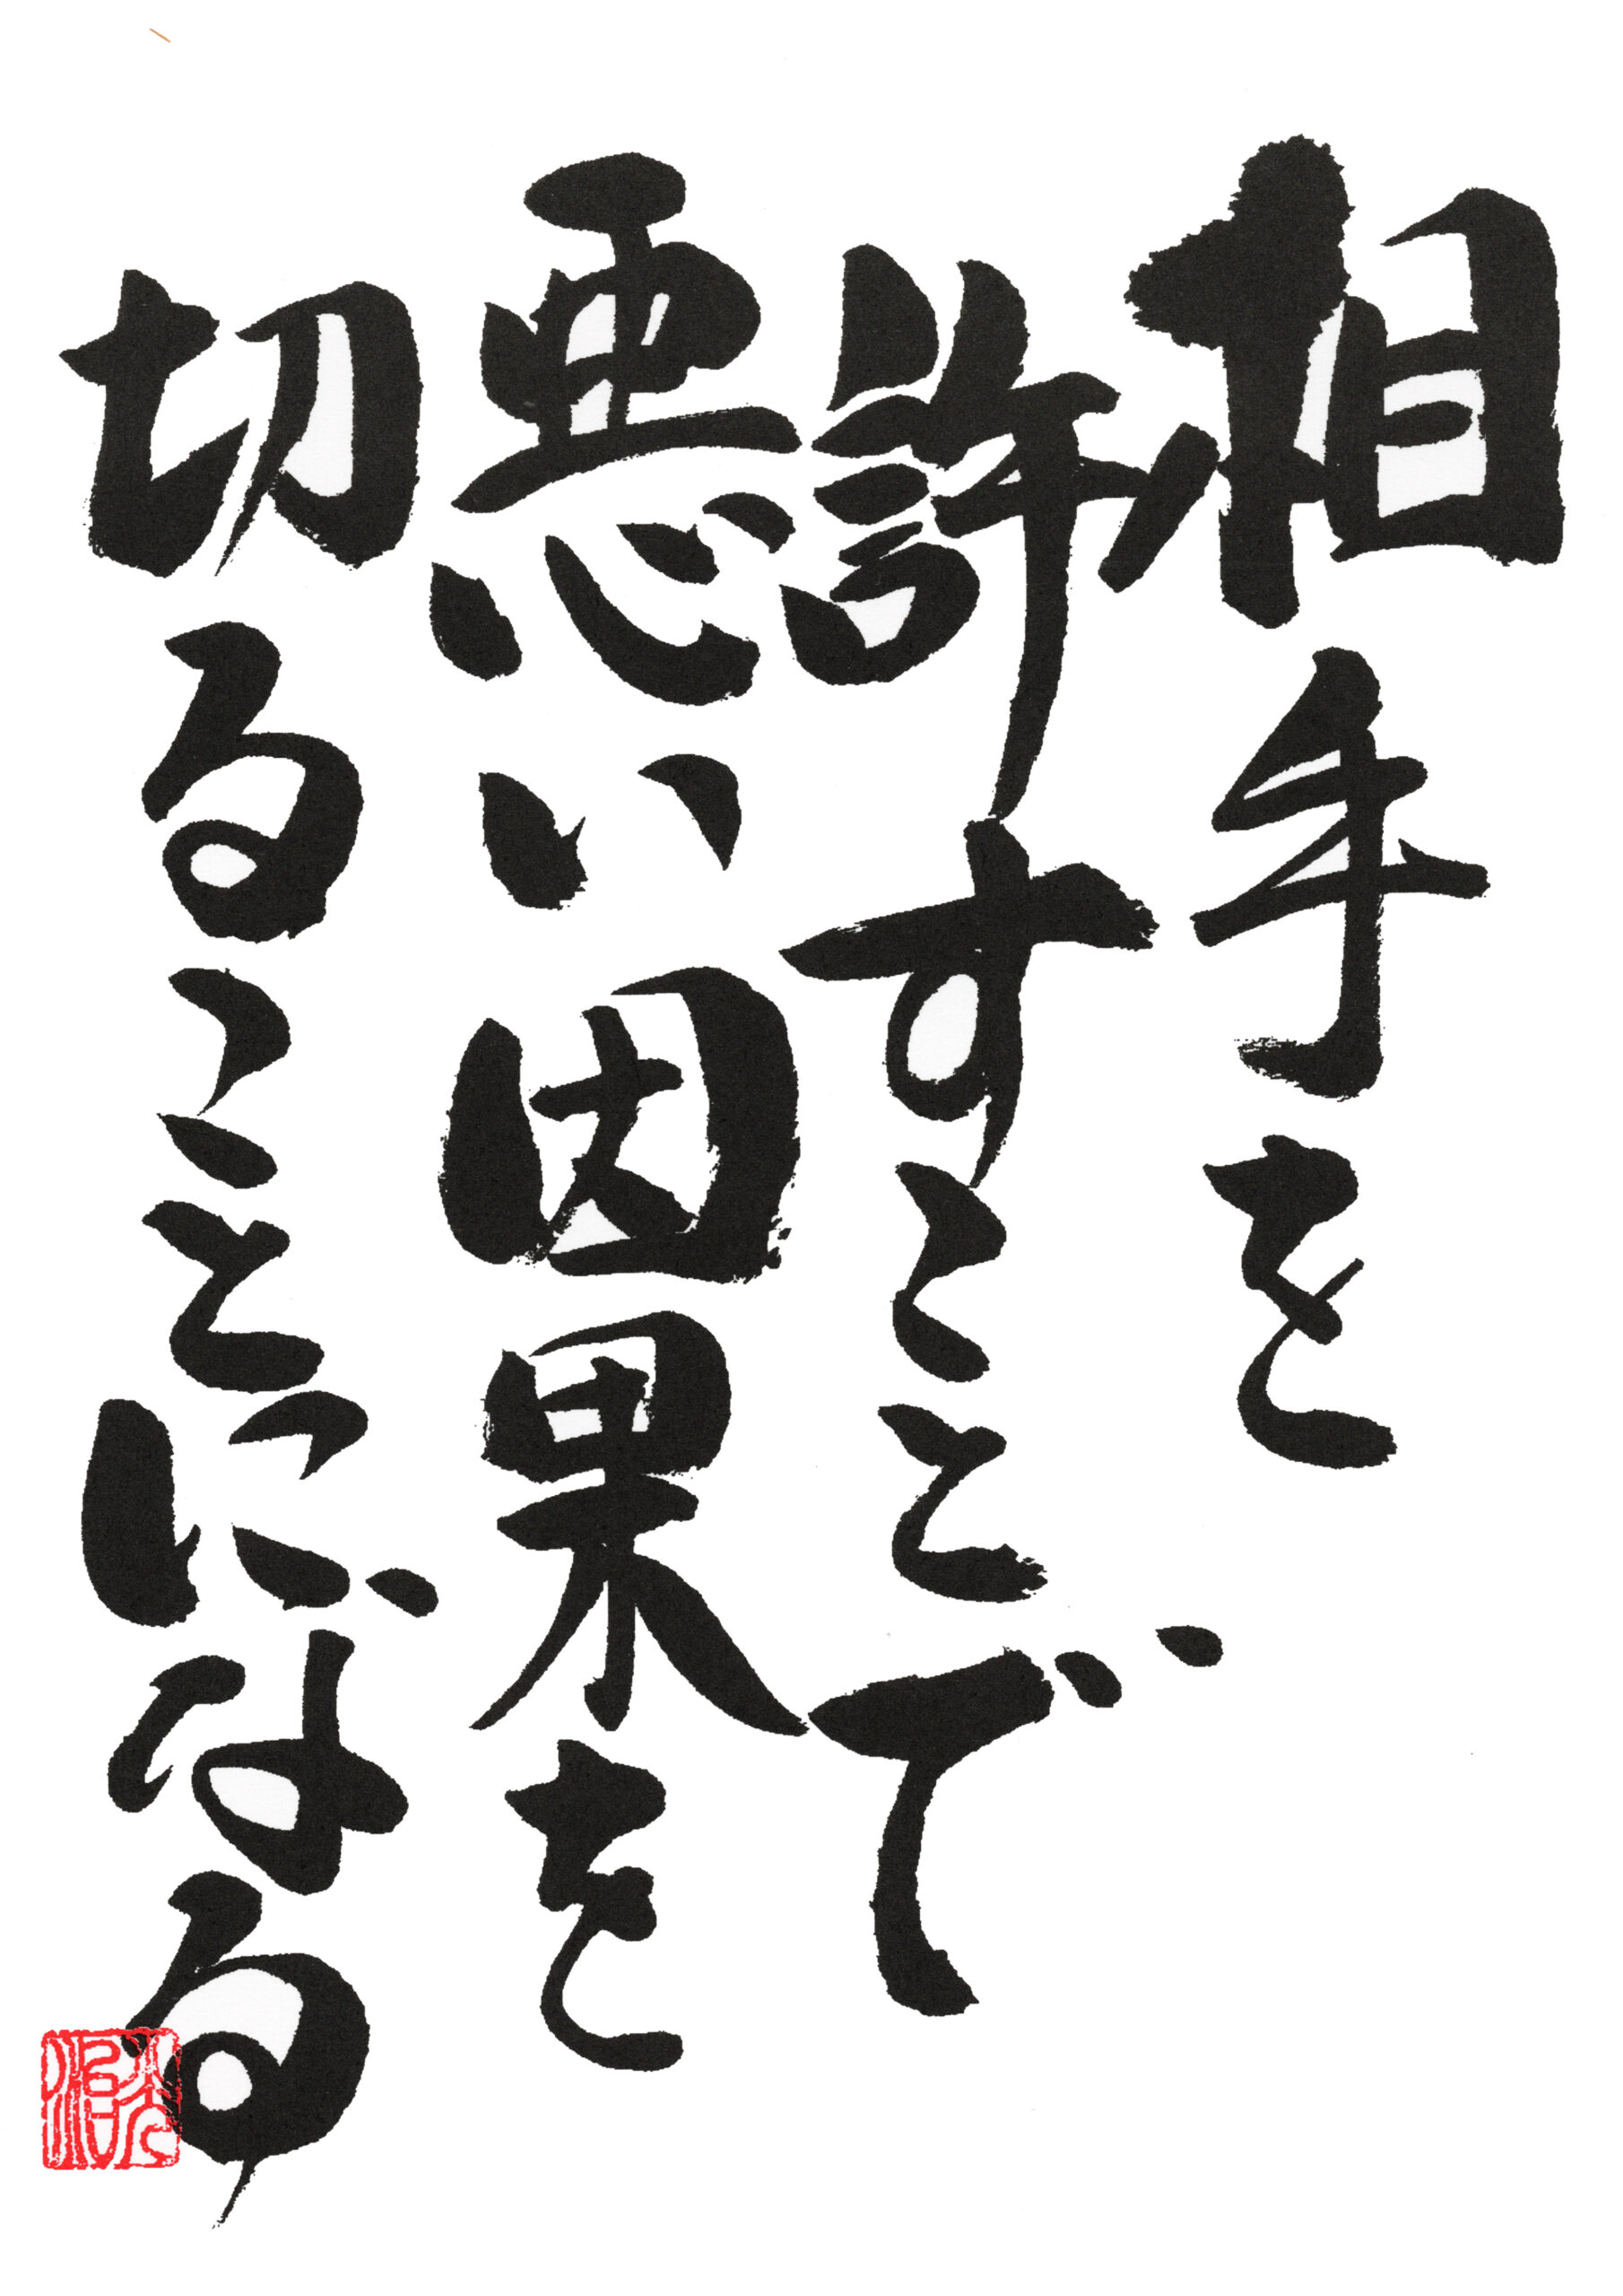 相手を
許すことで
悪い因果を
切ることになる